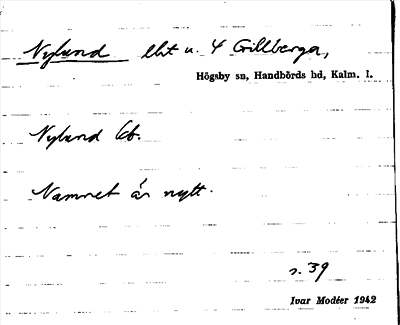 Nylund lht u. 4 Grillberga,
Högsby sn, Handbörds hd, Kalm. l.
Nylund kb.
Namnet är nytt.
s. 39
Ivar Modéer 1942